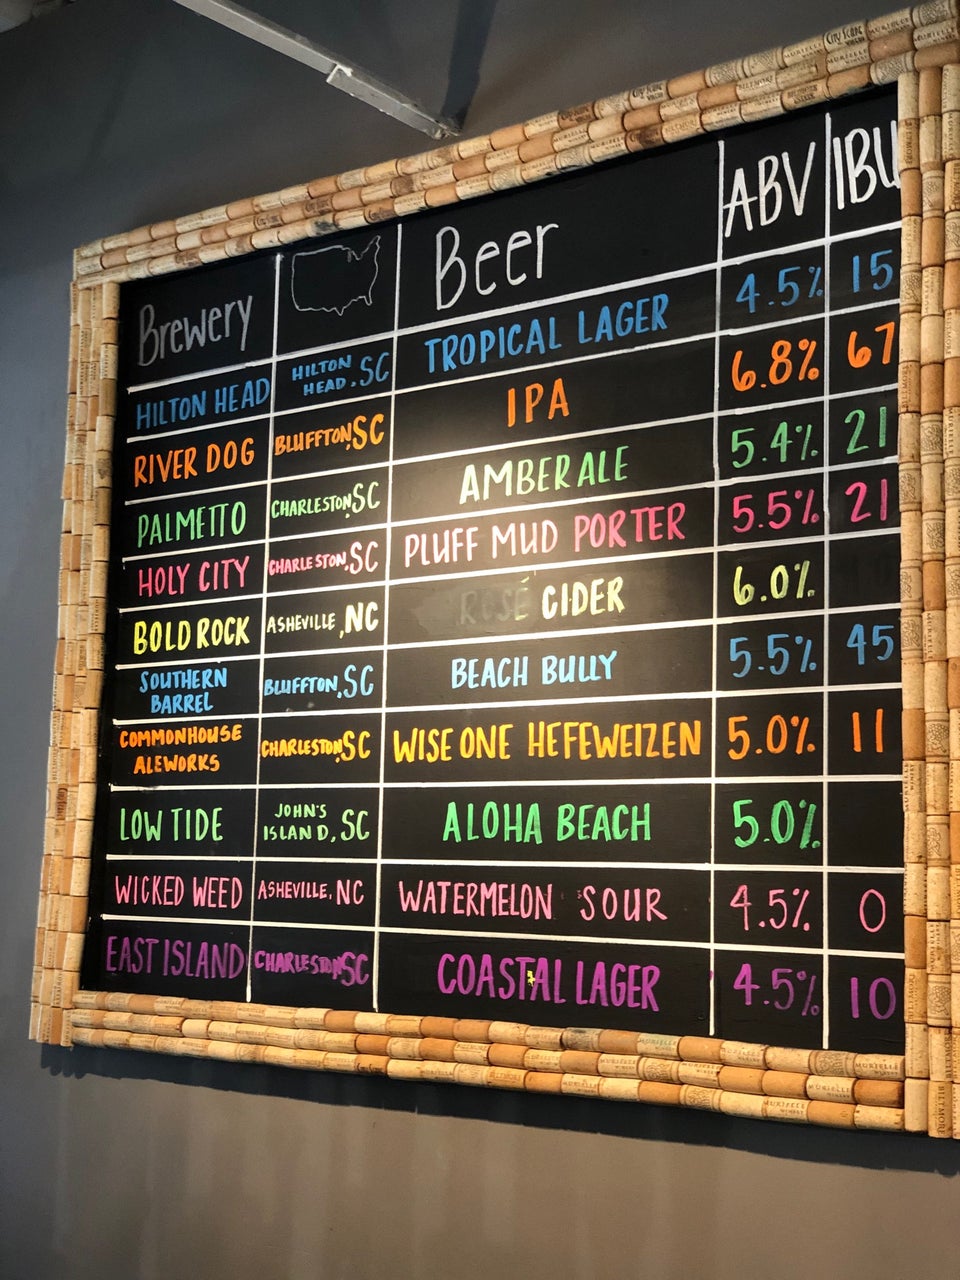 Brewery Beer ABV IBU
HILTON HEAD HILTON HEAD, SC TROPICAL LAGER 4.5% 15
RIVER DOG BLUFFTON, SC IPA 6.8% 67
PALMETTO CHARLESTON, SC AMBER ALE 5.4% 21
HOLY CITY CHARLESTON, SC PLUFF MUD PORTER 5.5% 21
BOLD ROCK ASHEVILLE, NC ROSÉ CIDER 6.0%
SOUTHERN BARREL BLUFFTON, SC BEACH BULLY 5.5% 45
COMMONHOUSE ALEWORKS CHARLESTON, SC WISE ONE HEFEWEIZEN 5.0% 11
LOW TIDE JOHN'S ISLAND, SC ALOHA BEACH 5.0%
WICKED WEED ASHEVILLE, NC WATERMELON SOUR 4.5% 0
EAST ISLAND CHARLESTON SC COASTAL LAGER 4.5% 10